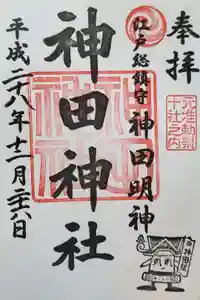 奉拝
元准勅祭
十社之内
江戸総鎮守 神田明神
神田神社
平成二十八年十一月二十六日